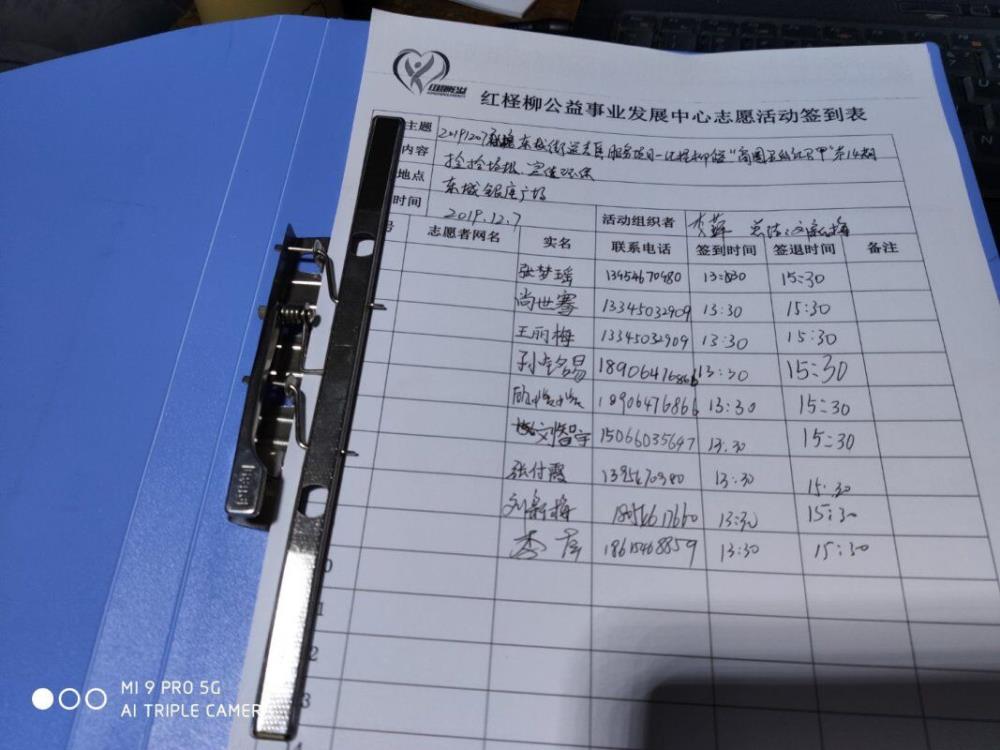 红柽柳公益事业发展中心志愿活动签到表
主题 20191207 东城街道 服务项目—红柽柳 "商圈 红马甲"第14期
内容 捡捡垃圾、宣传环保
地点 东城银座广场
时间 2019.12.7 活动组织者 李
号 志愿者网名 实名 联系电话 签到时间 签退时间 备注
张梦瑶 13954670980 13:30 15:30
尚世骞 13345032909 13:30 15:30
王丽梅 13345032909 13:30 15:30
孙 易 18906476866 13:30 15:30
18906476866 13:30 15:30
刘智宇 15066035647 13:30 15:30
张付霞 13:30 15:30
刘新梅 13:30 15:30
李 13:30 15:30
0
1
2
3
MI 9 PRO 5G
AI TRIPLE CAMER